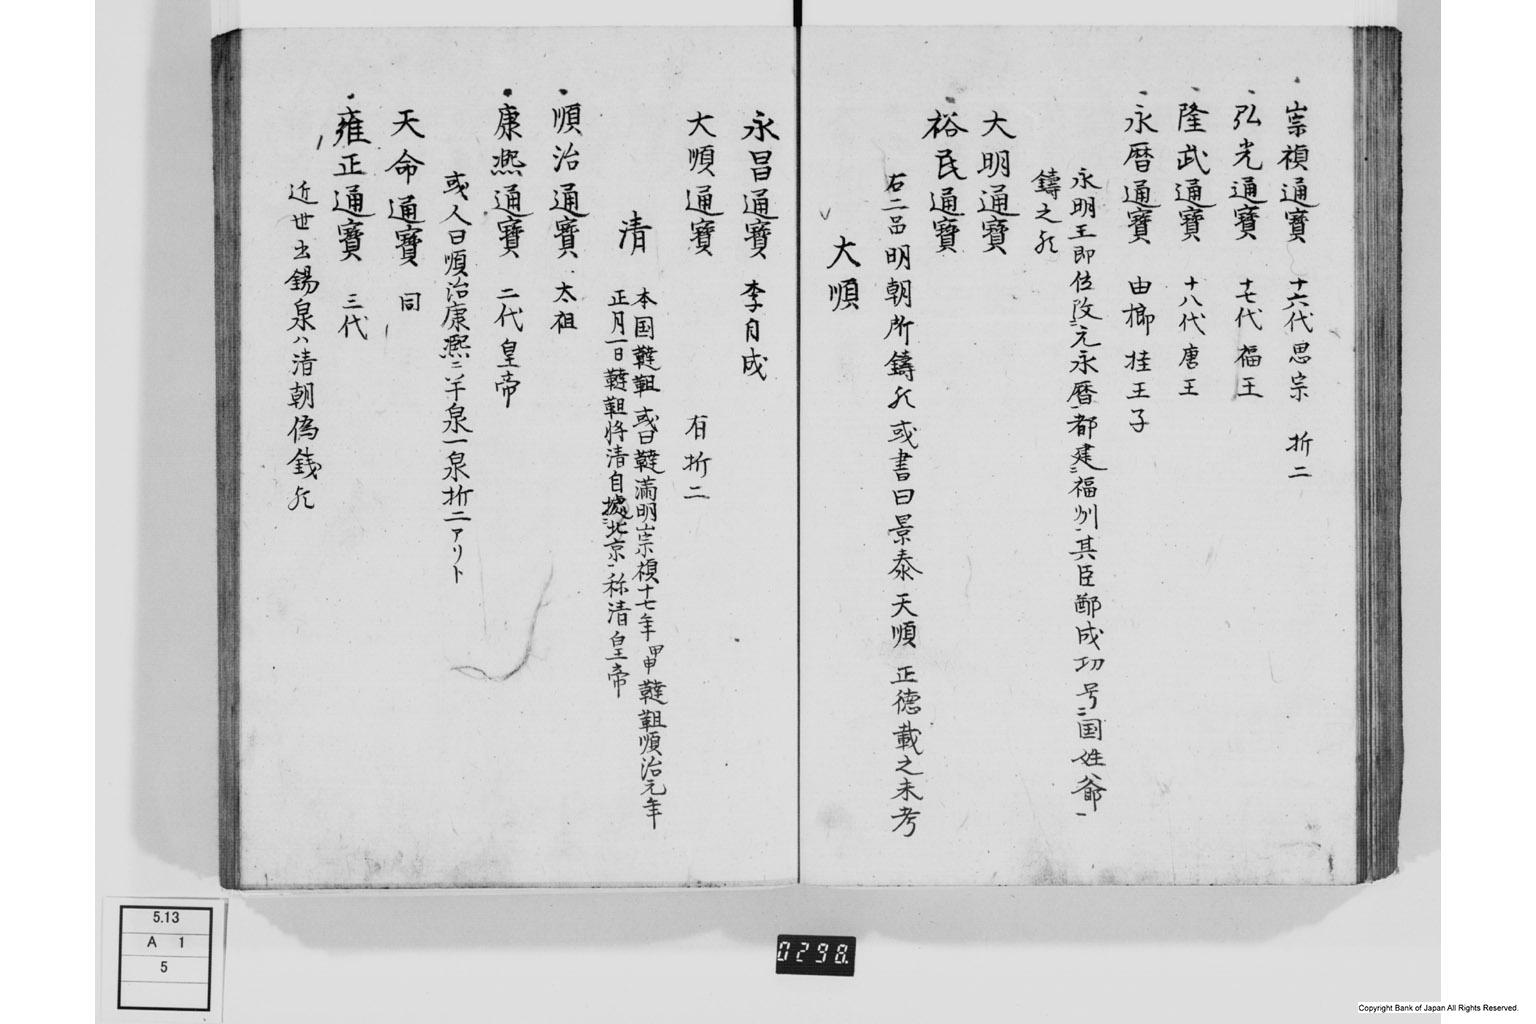 崇禎通寳 十六代思宗 折二
弘光通寳 十七代福王
隆武通寳 十八代唐王
永暦通寳 由榔 桂王子
永明王即位改元永暦都建福州其臣鄭成功号国姓爺
鑄之
大明通寳
裕民通寳
右二品明朝所鑄 或書曰景泰天順正徳載之未考
大順
永昌通寳 李自成
大順通寳 右折二
清
本国韃靼或曰韃満明崇禎十七年甲申韃靼順治元年
正月一日韃靼将清自據北京称清皇帝
順治通寳 太祖
康熙通寳 二代皇帝
或人曰順治康熙ニ平泉一泉折二アリト
天命通寳 同
雍正通寳 三代
近世出錫泉ハ清朝偽銭
5.13
A 1
5
0298.
Copyright Bank of Japan All Rights Reserved.